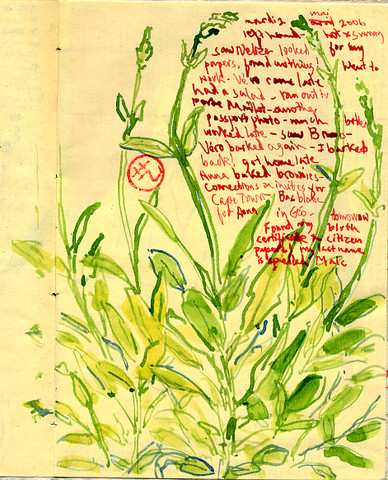 mardi 2 mai 2006
repos and - hot & sunny
saw Weber looked for my
papers, found nothing! Went to
work - Véro came late
had a salad - ran out to
Porte Maillot - another
passport photo - much better
worked late - saw Bruno -
Véro barked again - I barked
back, got home late
Anna baked brownies -
connections on
Cape Town Bac blanc
for Anna in Geo - tomorrow
Found my birth
certificate & citizen
papers my last name
is spelled Marc